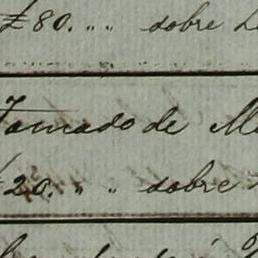 £80. „ „ sobre L
Tomado de M
£20. „ „ sobre